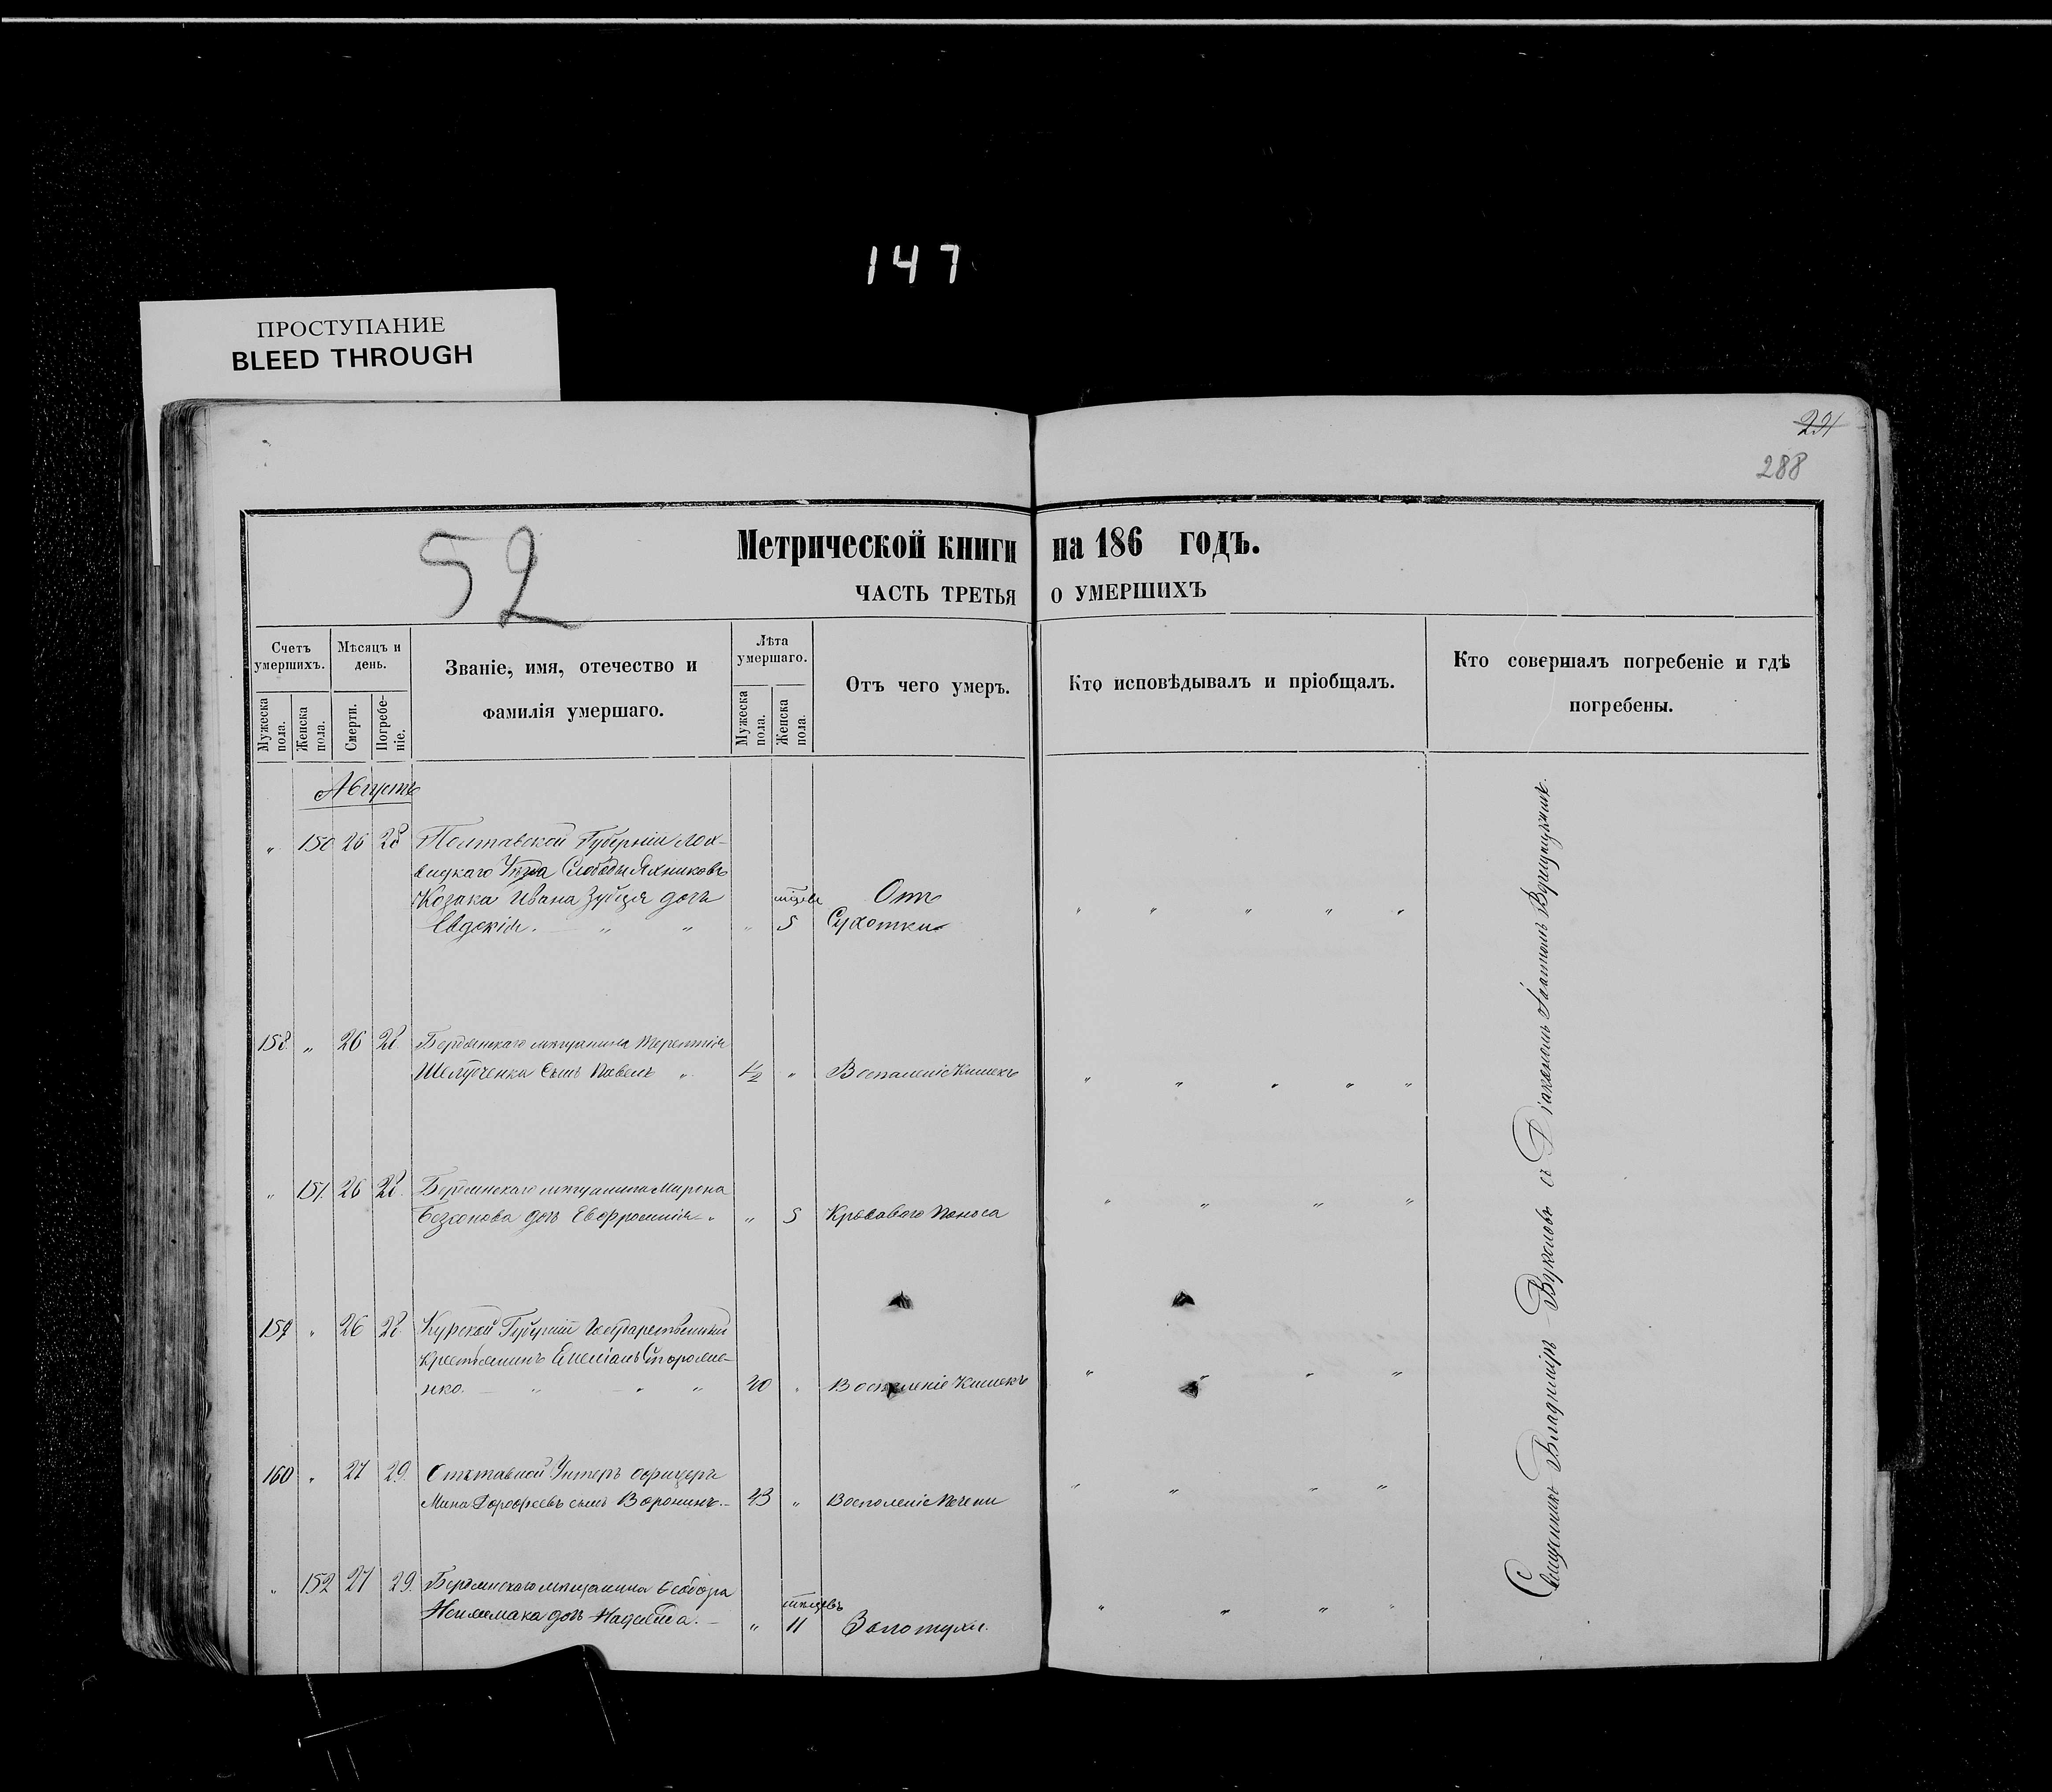 147
ПРОСТУПАНИЕ
BLEED THROUGH
288
52
Метрической книги на 186 годъ.
ЧАСТЬ ТРЕТЬЯ О УМЕРШИХЪ
Счетъ умершихъ.
Мужеска пола.
Женска пола.
Мѣсяцъ и день.
Смерти.
Погребеніе.
Званіе, имя, отечество и фамилія умершаго.
Лѣта умершаго.
Мужеска пола.
Женска пола.
Отъ чего умеръ.
Кто исповѣдывалъ и пріобщалъ.
Кто совершалъ погребеніе и гдѣ погребены.
Августъ
" 150 26 28 Полтавской Губерніи Лох-
вицкаго Уѣзда Слободы Яхниковъ
Козака Ивана Зубця дочь
Евдокія. " " " 5 Отъ Сухотки
158 " 26 28 Бердянскаго мѣщанина Терентія
Сынъ Павелъ " 1/2 " Воспаленіе Кишекъ
" 151 26 28 Бердянскаго мѣщанина Мирона
дочь Евфросинія " " 5 Кроваваго Поноса
159 " 26 28 Курской Губерніи Государственный
крестьянинъ
нко. " " " 20 " Воспаленіе Кишекъ
160 " 27 29 Отставной Унтеръ офицеръ
Мина Дорофеевъ сынъ Воронинъ. 43 " Воспаленіе Печени
" 152 27 29 Бердянскаго мѣщанина Ѳеодора
дочь " 11 Золотухи.
Священникъ Владиміръ Вуколовъ съ Діакономъ Іоанномъ